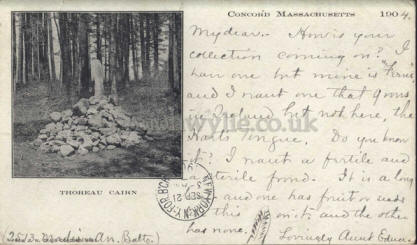 CONCORD MASSACHUSETTS 1904.
My dear - How is your
collection coming on? I
have one but mine is "Ferns"
and I want one that grows
in England but not here, the
Harts Tongue. Do you know
it? I want a fertile and
a sterile frond. It is a long
and one has fruit or seeds
this on it and the other
has none. Lovingly Aunt
THOREAU CAIRN
NEW YORK, N.Y.
SEP 21
2513 Madison Av. Balto.
wylie.co.uk